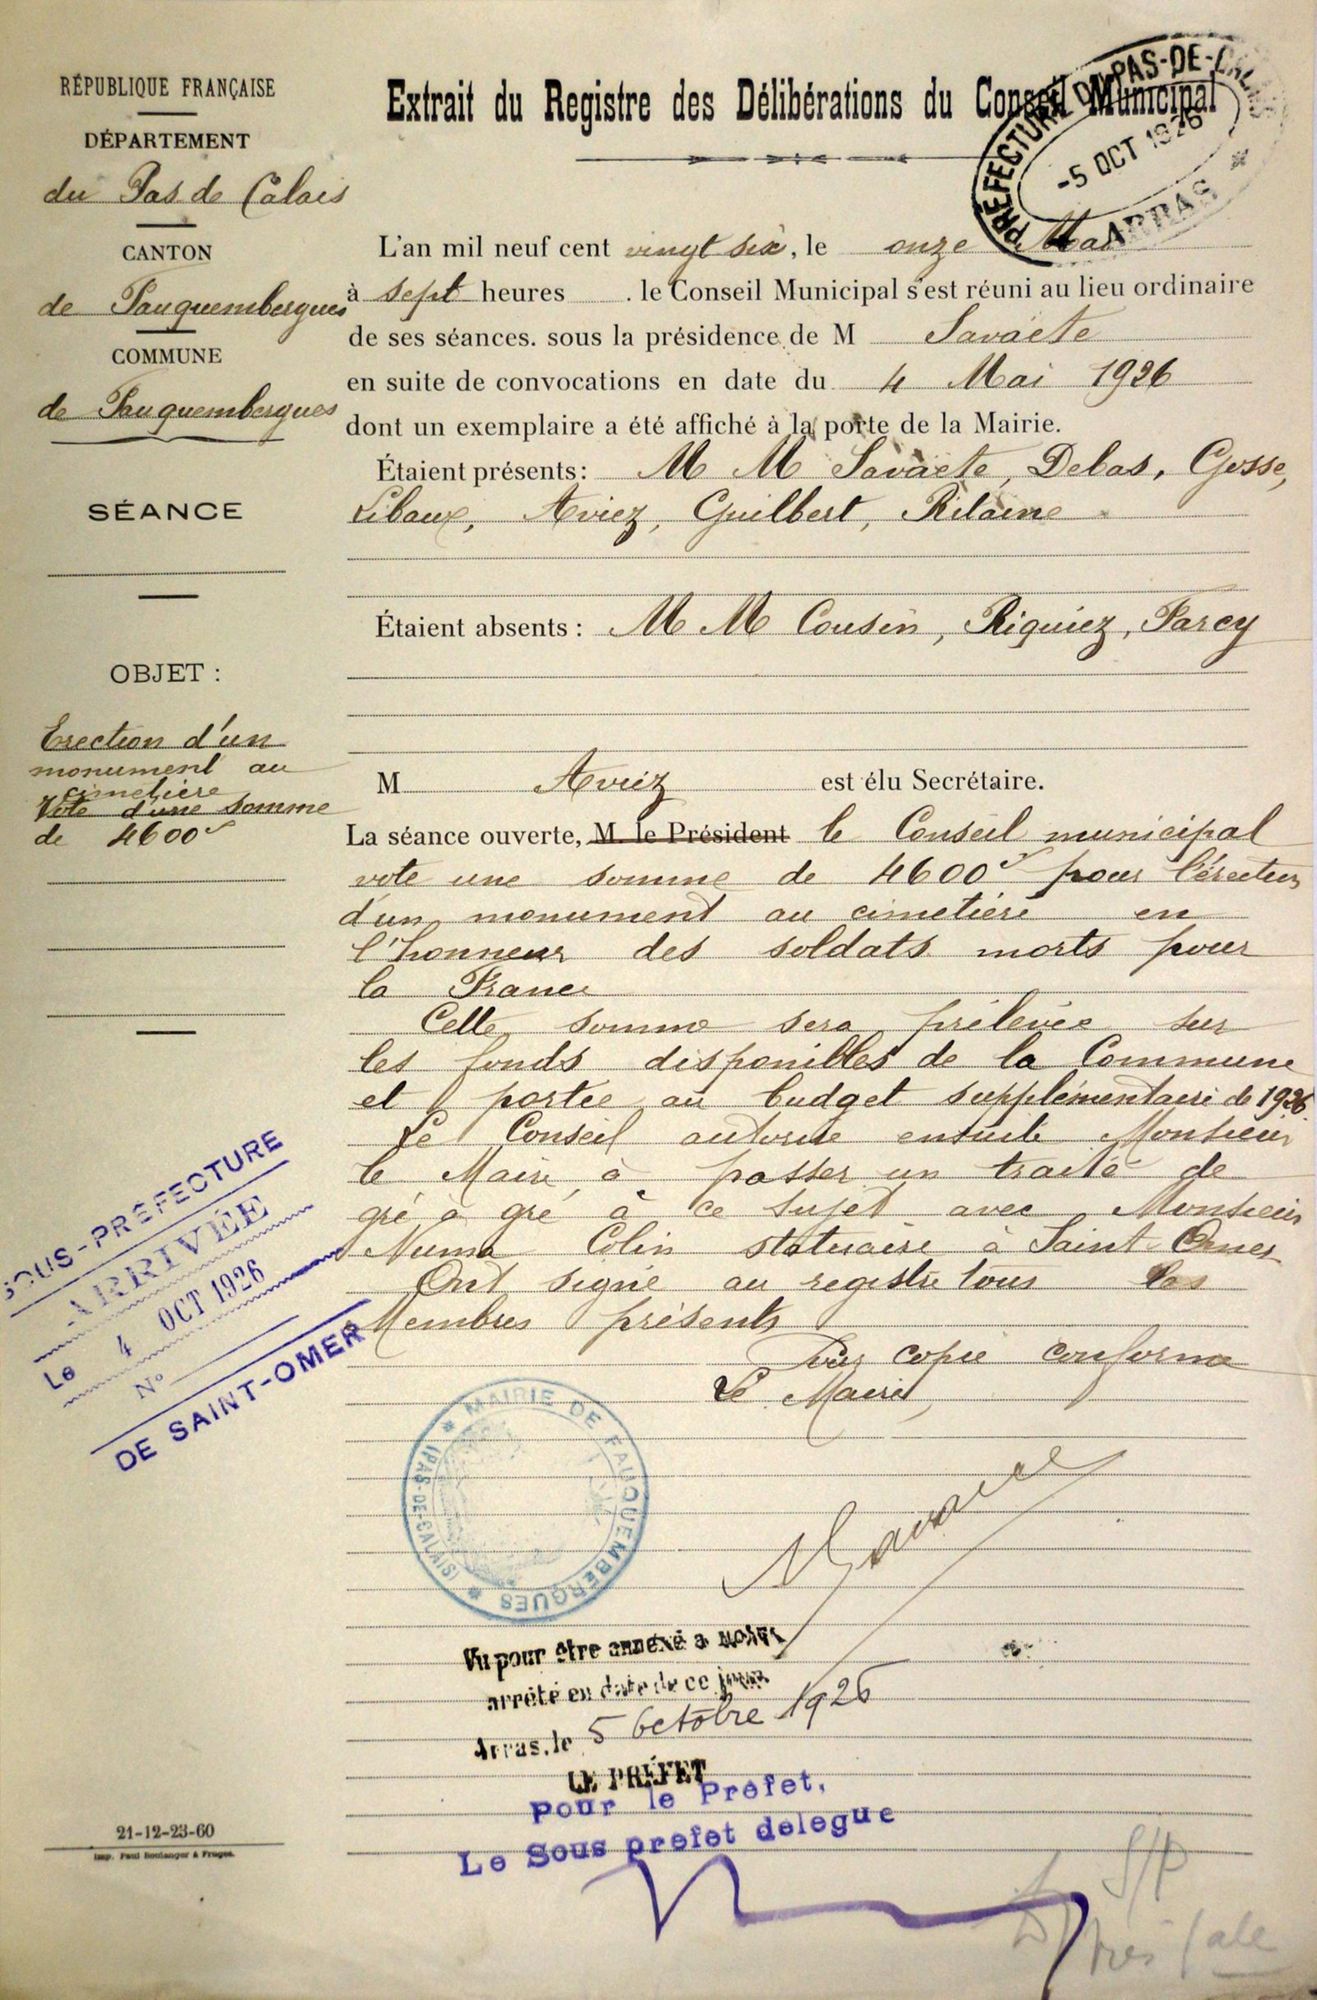 RÉPUBLIQUE FRANÇAISE
DÉPARTEMENT
du Pas de Calais
CANTON
de Fauquembergues
COMMUNE
de Fauquembergues
SÉANCE
OBJET :
Erection d'un
monument au
cimetière
Vote d'une somme
de 4600f
SOUS-PRÉFECTURE
ARRIVÉE
Le 4 OCT 1926
N°
DE SAINT-OMER
21-12-23-60
Imp. Paul Boulanger à Fruges.
Extrait du Registre des Délibérations du Conseil Municipal
PRÉFECTURE DU PAS-DE-CALAIS
-5 OCT 1926
ARRAS
L'an mil neuf cent vingt six, le onze Mai
à sept heures . le Conseil Municipal s'est réuni au lieu ordinaire
de ses séances. sous la présidence de M Savaete
en suite de convocations en date du 4 Mai 1926
dont un exemplaire a été affiché à la porte de la Mairie.
Étaient présents : M M Savaete, Delas, Gosse,
Libaux, Aviez, Guilbert, Rilaine
Étaient absents : M M Cousin, Riquiez, Farcy
M Aviez est élu Secrétaire.
La séance ouverte, M. le Président le Conseil municipal
vote une somme de 4600f pour l'érection
d'un monument au cimetière en
l'honneur des soldats morts pour
la France
Cette somme sera prélevée sur
les fonds disponibles de la Commune
et portée au budget supplémentaire de 1926.
Le Conseil autorise ensuite Monsieur
le Maire à passer un traité de
gré à gré à ce sujet avec Monsieur
Numa Colin statuaire à Saint Omer
Ont signé au registre tous les
Membres présents
Pour copie conforme
Le Maire,
MAIRIE DE FAUQUEMBERGUES
(PAS-DE-CALAIS)
Savaete
Vu pour être annexé à notre
arrêté en date de ce jour
Arras, le 5 Octobre 1926
LE PRÉFET
Pour le Préfet,
Le Sous prefet delegue
S/P